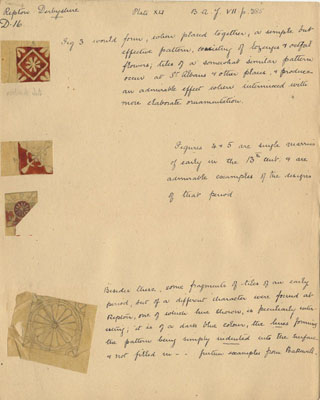 Repton Derbyshire
Plate XLI
B.A.J. VII p.
D.16.
Fig 3 would form, when placed together, a simple but
effective pattern, consisting of lozenges &
flowers; tiles of a somewhat similar pattern
occur at St. Albans & other places, & produce
an admirable effect when intermixed with
more elaborate ornamentation.
Figures 4 & 5 are single
of early in the 13th cent. & are
admirable examples of the designs
of that period
Besides these, some fragments of tiles of an early
period, but of a different character were found at
Repton, one of which here shown, is peculiarly inter-
esting; it is of a dark blue colour, the lines forming
the pattern being simply indented into the surface
& not filled in - - further examples from Bakewell.